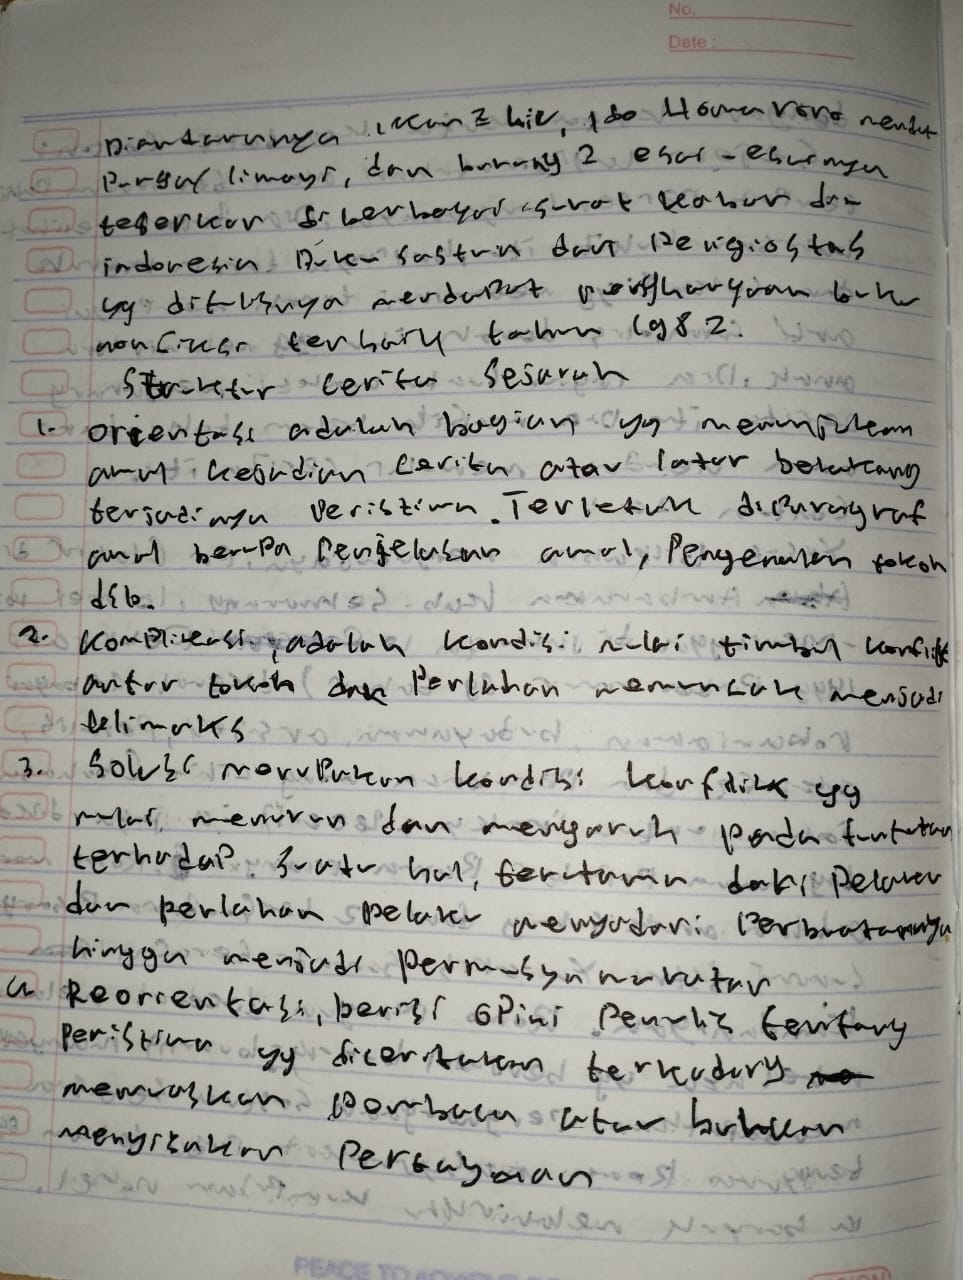 No.
Date :
Diantaranya ikan 2 hiu, Ido Homa Roro
Pursaf limays, dan burung 2 esai - esainya
teserkar di berbagai surat kabar dan
indonesia Buku sastra dan Religiostas
yg ditulisnya mendapat penghargaan buku
non fiksi terbaik tahun 1982.
Struktur Cerita Sejarah
1. orientasi adalah bagian yg menunjukkan
awal kejadian Cerita atau latar belakang
terjadinya Peristiwa. Terletak diParagraf
awal berupa Penjelasan awal, Pengenalan tokoh
dlb.
2. Komplikasi, adalah kondisi mulai timbul konflik
antar tokoh dan Perlahan memuncak menjadi
klimaks
3. Solusi merupakan kondisi konflik yg
mulai menurun dan mengaruh pada tuntutan
terhadap suatu hal, terutama dari Pelaku
dan perlahan pelaku menyadari Perbuatannya
hingga menjadi permusyawaratan
Reorientasi, berisi oPini Penulis tentang
Peristiwa yg diceritakan terkadang
memuaskan pembaca atau bahkan
menyisakan Pertanyaan